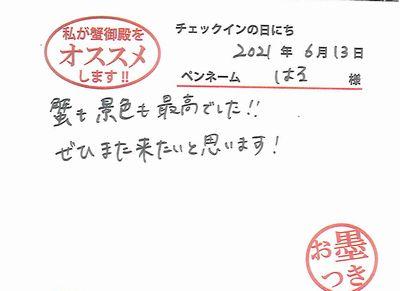 私が蟹御殿を
オススメ
します!!
チェックインの日にち
2021年6月13日
ペンネーム はる 様
蟹も景色も最高でした!!
ぜひまた来たいと思います!
お墨
つき